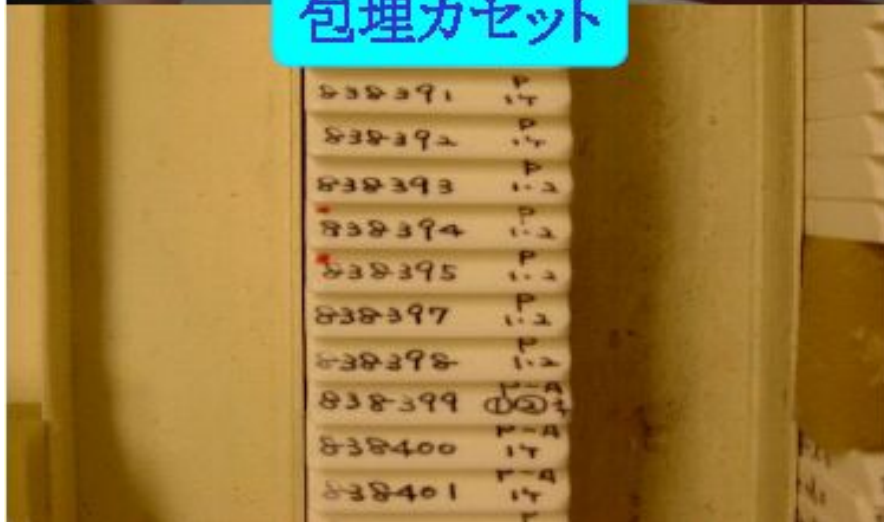 包埋カセット
838391 P
838392 P
838393 P 1.2
838394 P 1.2
838395 P 1.2
838397 P 1.2
838398 P 1.2
838399 P-A ①②
838400 P-A
838401 P-A